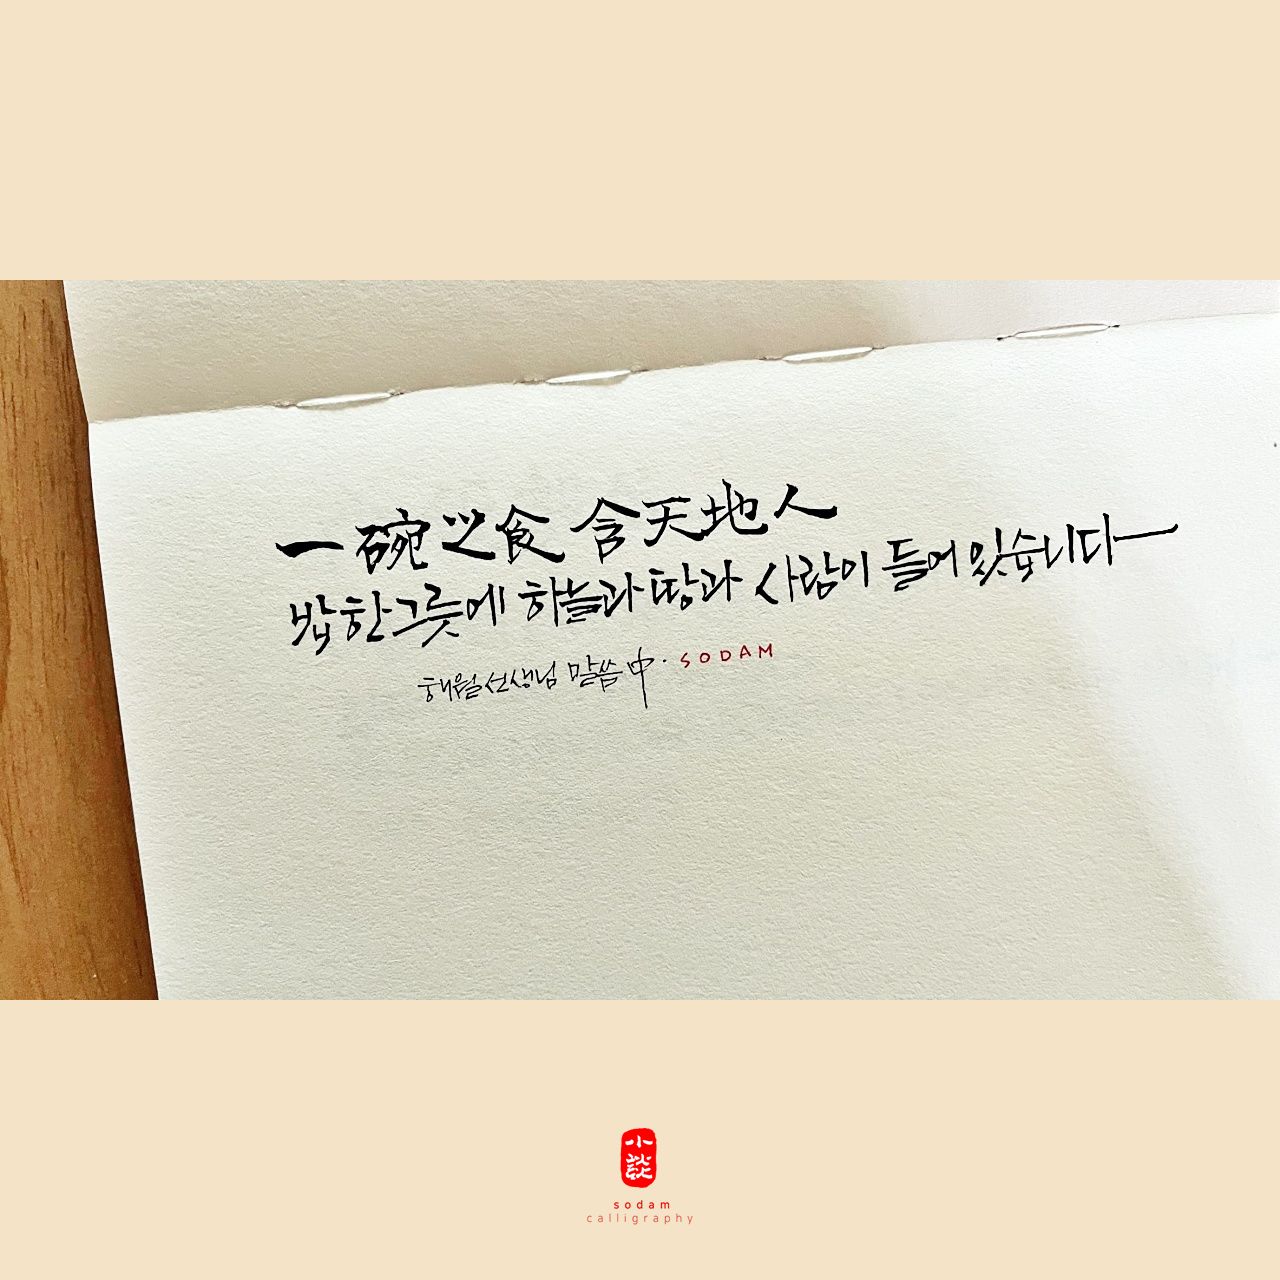 一碗之食 含天地人
밥 한그릇에 하늘과 땅과 사람이 들어 있습니다
해월선생님 말씀 中 · SODAM
小談
sodam
calligraphy